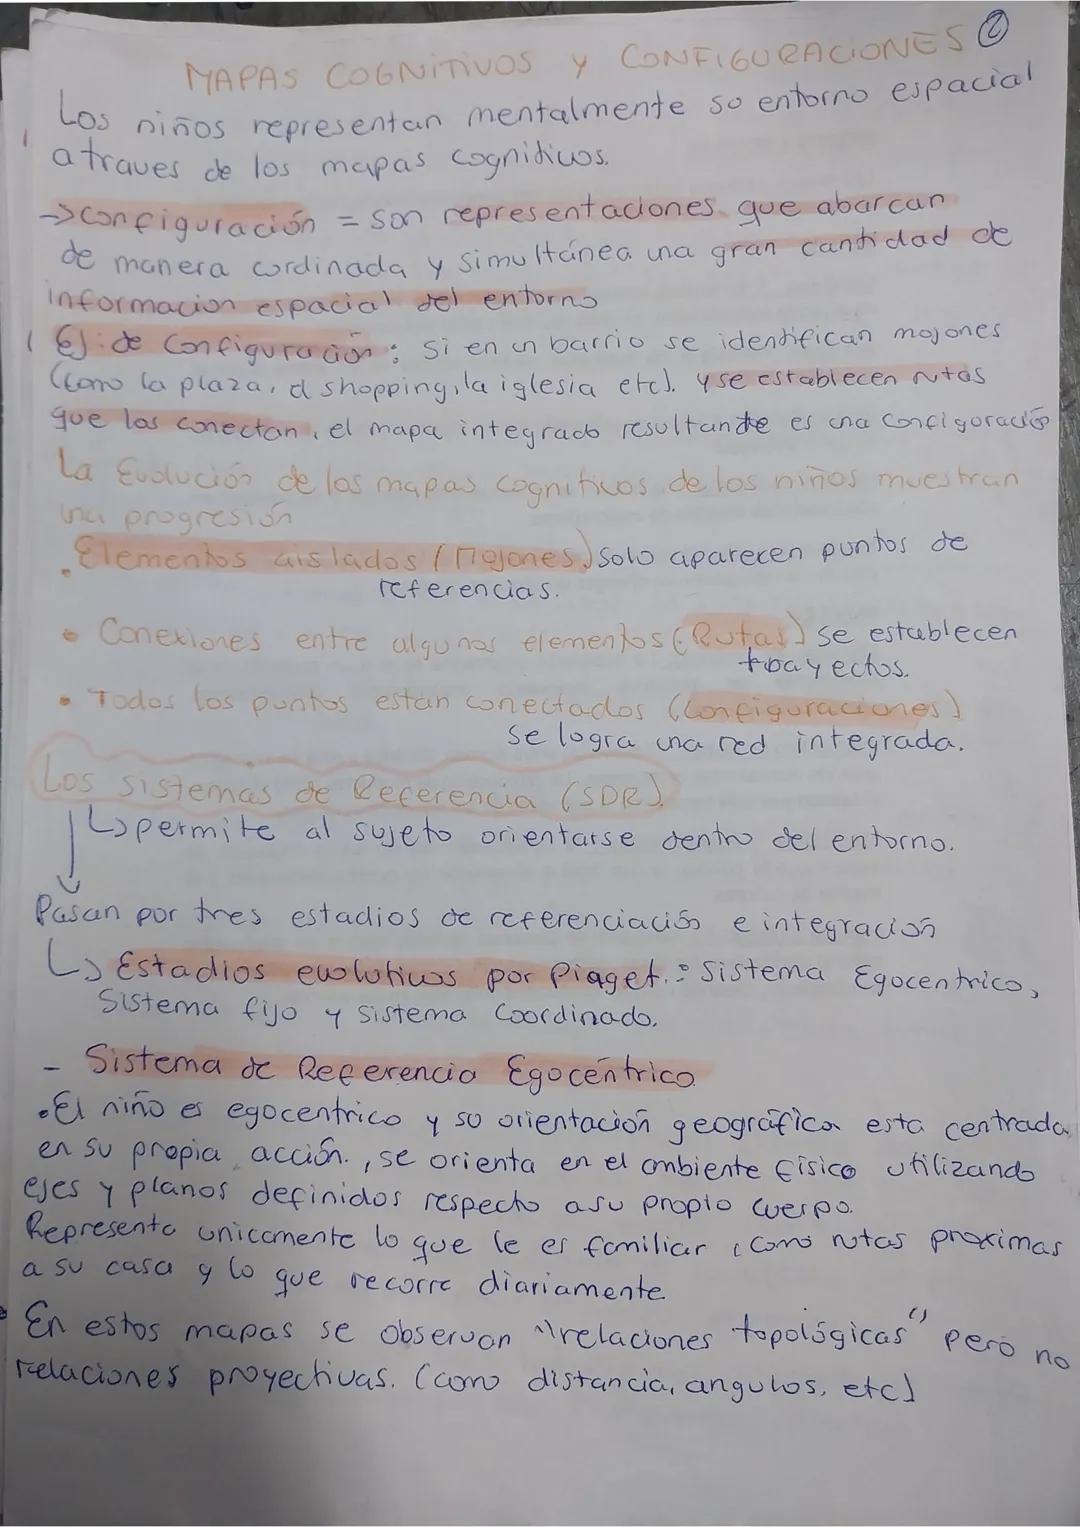 ②
MAPAS COGNITIVOS y CONFIGURACIONES
Los niños representan mentalmente so entorno espacial
a traves de los mapas cognitivos.
->configuración = son representaciones que abarcan
de manera cordinada y simultánea una gran cantidad de
informacion espacial del entorno
Ej: de Configuración: Si en un barrio se identifican mojones
(como la plaza, el shopping, la iglesia etc). y se establecen rutas
que los conectan, el mapa integrado resultante es una Configoración
La Evolución de los mapas cognitivos de los niños muestran
una progresión
. Elementos aislados (Mojones) Solo aparecen puntos de
referencias.
• Conexiones entre algunos elementos (Rutas) se establecen
trayectos.
• Todos los puntos estan conectados (Configuraciones)
Se logra una red integrada.
Los sistemas de Referencia (SDR).
↳permite al sujeto orientarse dentro del entorno.
Pasan por tres estadios de referenciación e integración
↳ Estadios evolutivos por Piaget.: Sistema Egocentrico,
Sistema fijo y sistema Coordinado.
- Sistema de Referencia Egocéntrico
•El niño es egocentrico y so orientación geográfica esta centrada
en su propia acción., se orienta en el ambiente físico utilizando
ejes y planos definidos respecto a su propio cuerpo.
Representa unicamente lo que le es familiar, como rutas proximas
a su casa y lo que recorre diariamente
• En estos mapas se observan "relaciones topológicas" pero no
relaciones proyectivas. (como distancia, angulos, etc)